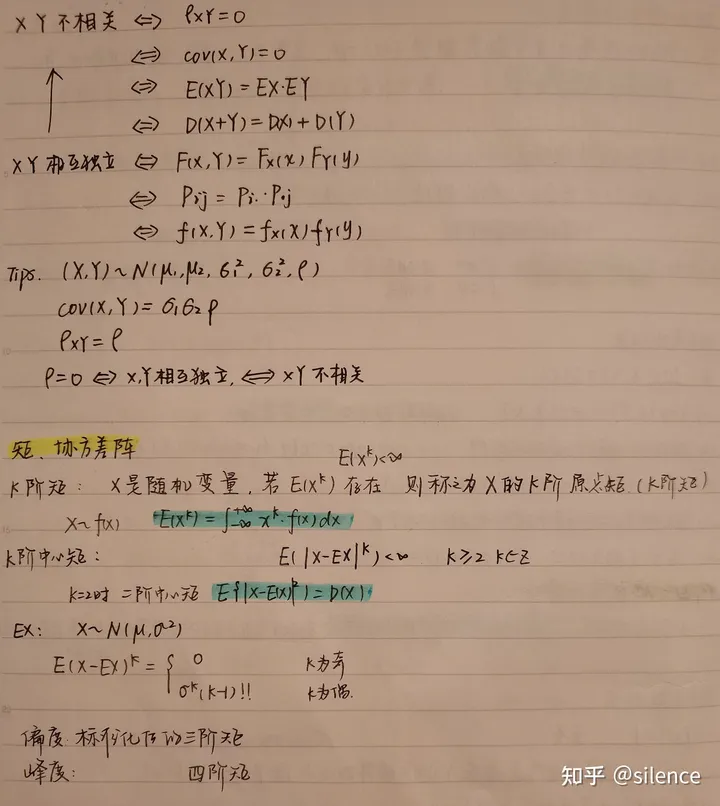 X Y 不相关 ⇔ ρXY=0
⇔ cov(X,Y)=0
⇔ E(XY)=EX·EY
⇔ D(X+Y)=D(X)+D(Y)
XY 相互独立 ⇔ F(X,Y)=Fx(x)FY(y)
⇔ Pij=Pi··P·j
⇔ f(X,Y)=fx(x)fY(y)
Tips. (X,Y)~N(μ₁,μ₂,σ₁²,σ₂²,ρ)
cov(X,Y)=σ₁σ₂ρ
ρXY=ρ
ρ=0 ⇔ X,Y相互独立, ⇔ XY 不相关
矩、协方差阵
E(X^k)<∞
K阶矩: X是随机变量, 若 E(X^k) 存在 则称之为 X的K阶原点矩 (K阶矩)
X~f(x) E(X^k)=∫_{-∞}^{+∞} x^k·f(x)dx
K阶中心矩: E(|X-EX|^k)<∞ K≥2 K∈Z
K=2时 二阶中心矩 E{|X-E(X)|²}=D(X).
EX: X~N(μ,σ²)
E(X-EX)^k = { 0 K为奇
σ^k(k-1)!! K为偶.
偏度: 标准化后的三阶矩
峰度: 四阶矩
知乎 @silence